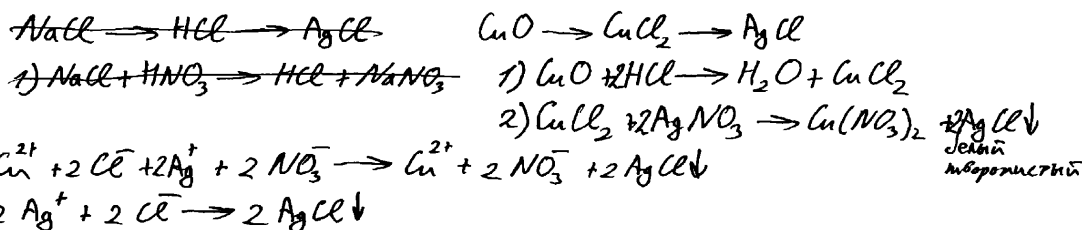 NaCl → HCl → AgCl
1) NaCl + HNO₃ → HCl + NaNO₃
CuO → CuCl₂ → AgCl
1) CuO + 2HCl → H₂O + CuCl₂
2) CuCl₂ + 2AgNO₃ → Cu(NO₃)₂ + 2AgCl↓
белый
творожистый
Cu²⁺ + 2Cl⁻ + 2Ag⁺ + 2NO₃⁻ → Cu²⁺ + 2NO₃⁻ + 2AgCl↓
2Ag⁺ + 2Cl⁻ → 2AgCl↓